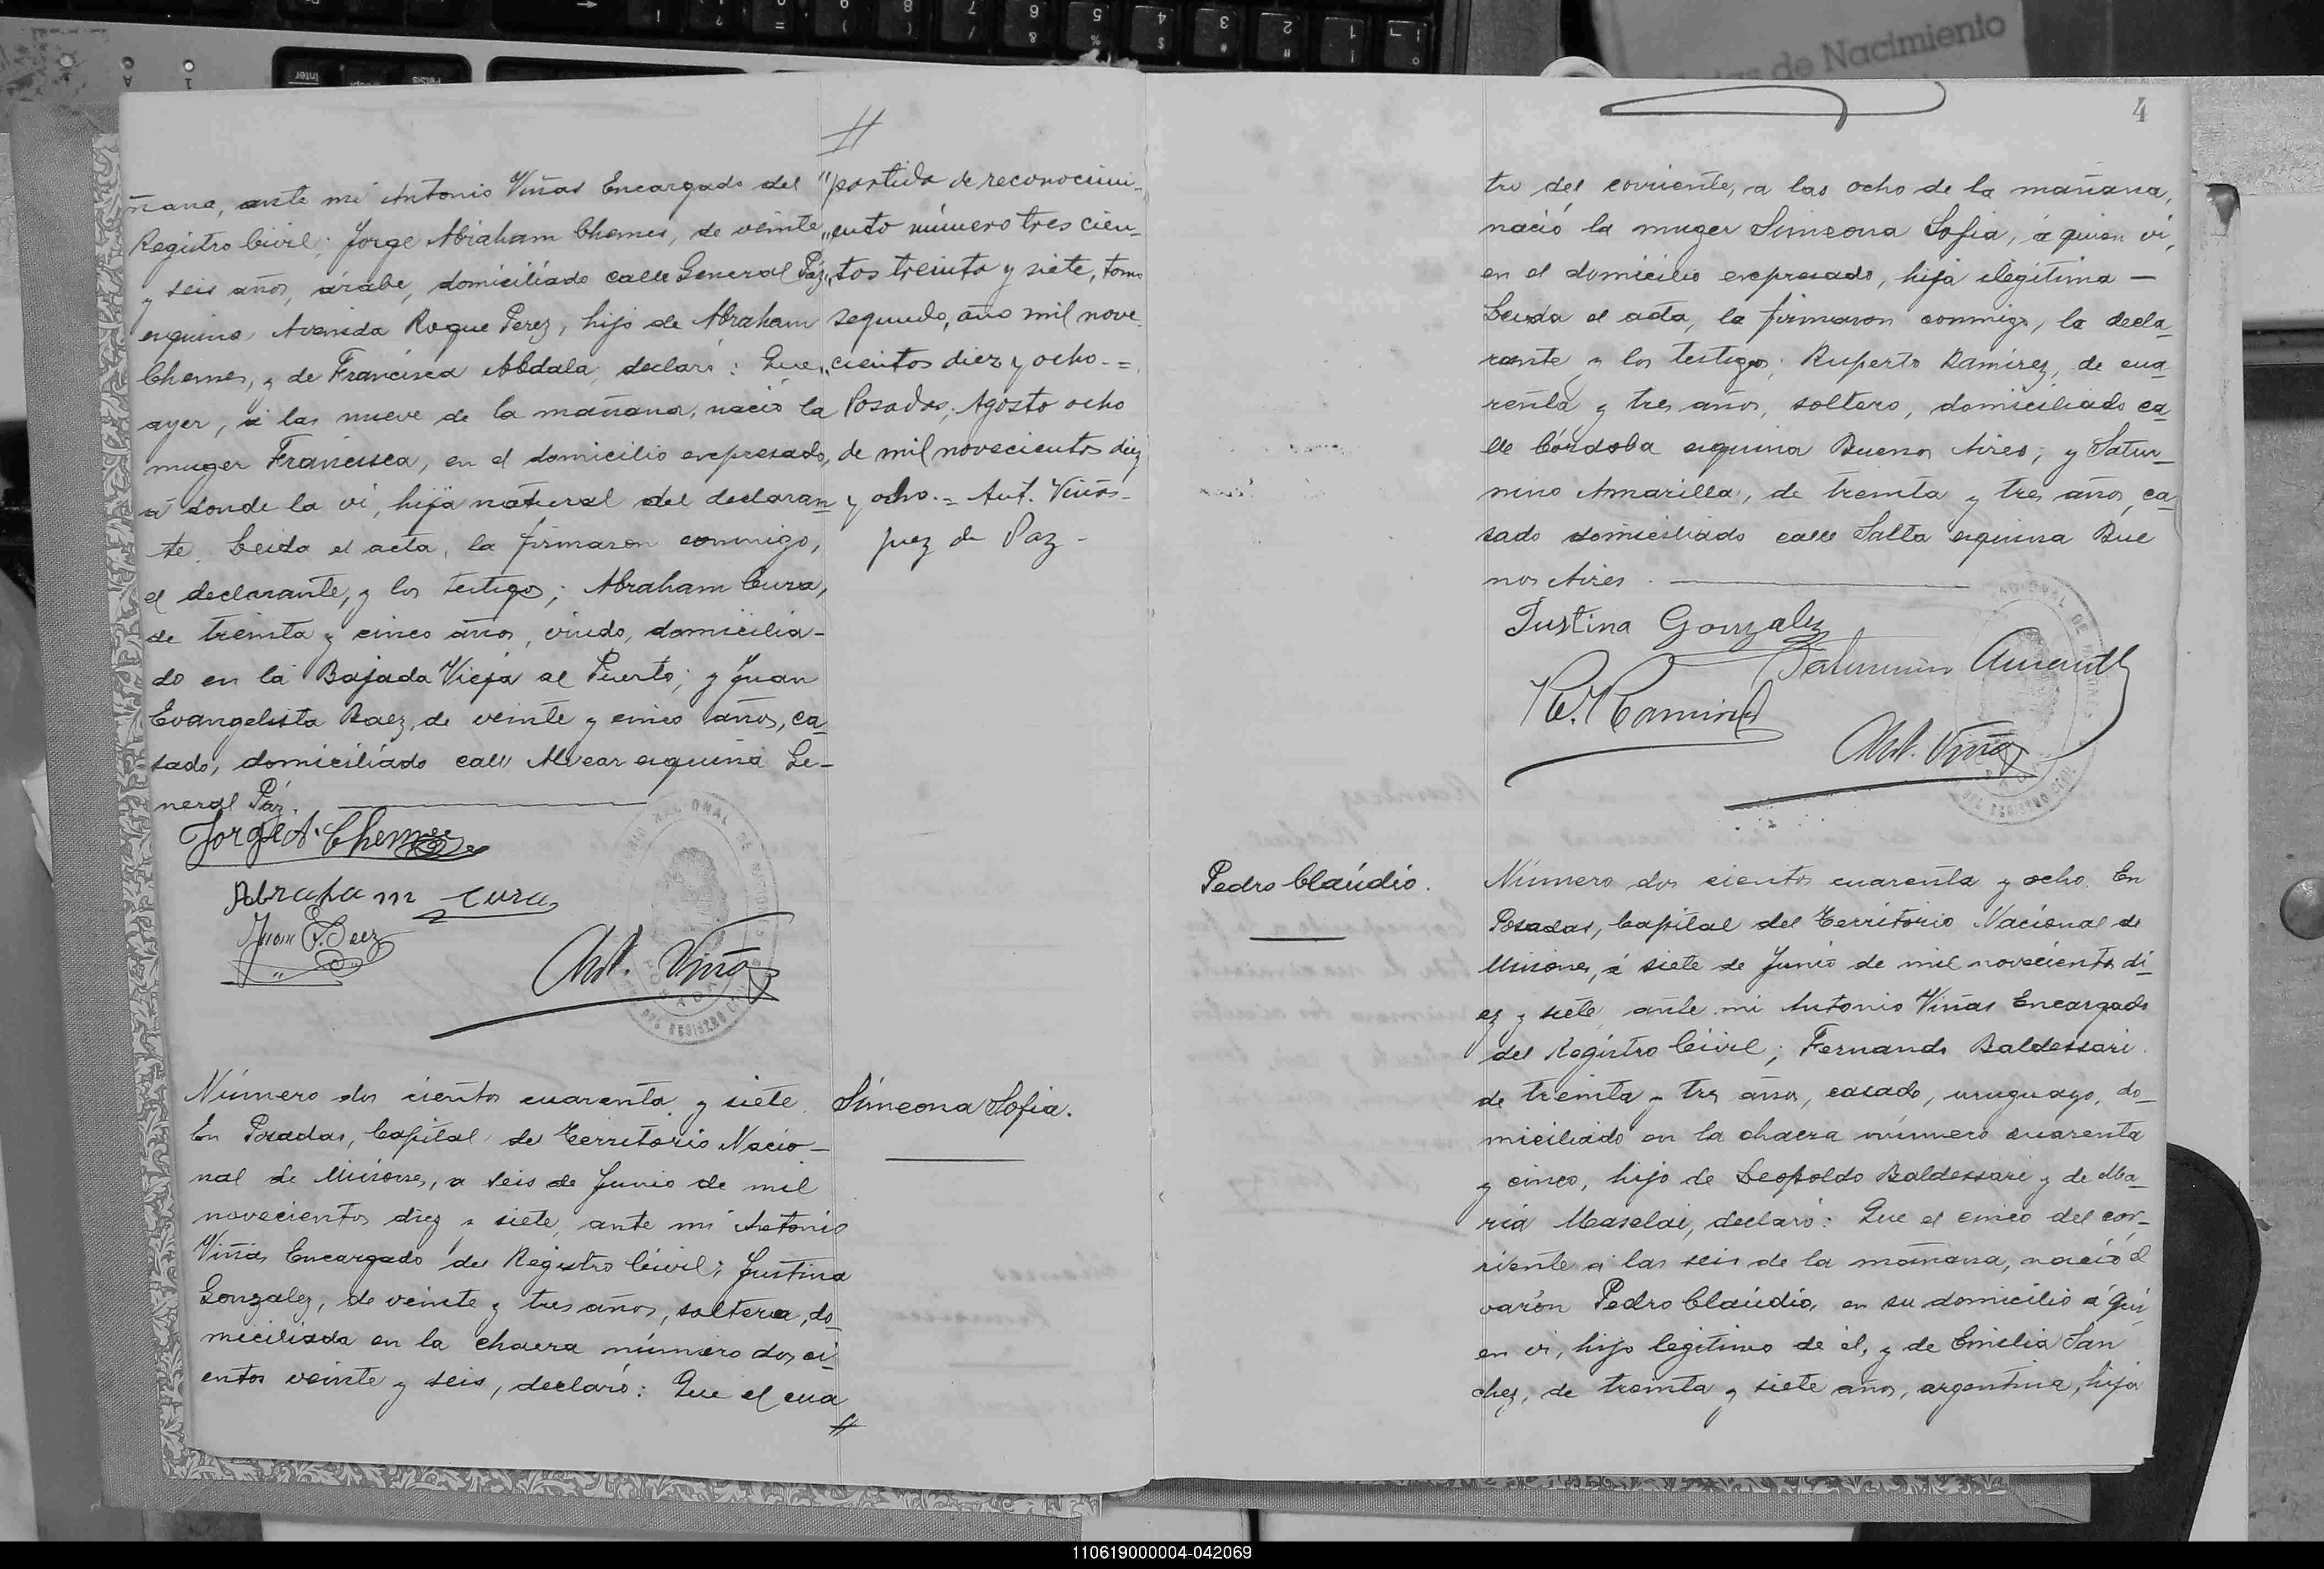 ñana, ante mi Antonio Viñas Encargado del
Registro Civil; Jorge Abraham Chemes, de veinte
y seis años, árabe, domiciliado calle General Páz
esquina Avenida Roque Perez, hijo de Abraham
Chemes, y de Francisca Abdala, declaró: Que
ayer, á las nueve de la mañana, nació la
muger Francisca, en el domicilio expresado,
á donde la ví, hija natural del declaran
te. Leida el acta, la firmaron conmigo,
el declarante, y los testigos; Abraham Cura,
de treinta y cinco años, viudo, domicilia-
do en la Bajada Vieja al Puerto; y Juan
Evangelista Baez, de veinte y cinco años, ca
sado, domiciliado calle Alvear esquina Ge-
neral Páz.
Jorge A. Chemes
Abraham Cura
Juan E. Baez
Ant. Viñas
#
"partida de reconocimi-
"ento número tres cien-
"tos treinta y siete, tomo
segundo, año mil nove-
"cientos diez y ocho.=
Posadas, Agosto ocho
de mil novecientos diez
y ocho.= Ant. Viñas-
Juez de Paz-
Número dos cientos cuarenta y siete
En Posadas, Capital del Territorio Nacio-
nal de Misiones, a seis de Junio de mil
novecientos diez y siete, ante mi Antonio
Viñas Encargado del Registro Civil; Justina
Gonzalez, de veinte y tres años, soltera, do
miciliada en la chacra número dos ci
entos veinte y seis, declaró: Que el cua
#
Simeona Sofia.
4
tro del corriente, a las ocho de la mañana,
nació la muger Simeona Sofia, á quien ví,
en el domicilio expresado, hija ilegitima —
Leida el acta, la firmaron conmigo, la decla
rante y los testigos; Ruperto Ramirez, de cua
renta y tres años, soltero, domiciliado ca
lle Córdoba esquina Buenos Aires; y Satur-
nino Amarilla, de treinta y tres años, ca
sado domiciliado calle Salta esquina Bue
nos Aires.
Justina Gonzalez
Saturnino Amarilla
R. Ramirez
Ant. Viñas
Pedro Claúdio.
Número dos cientos cuarenta y ocho. En
Posadas, Capital del Territorio Nacional de
Misiones, á siete de Junio de mil novecientos di
ez y siete, ante mi Antonio Viñas Encargado
del Registro Civil; Fernando Baldessari
de treinta y tres años, casado, uruguayo, do-
miciliado en la chacra número cuarenta
y cinco, hijo de Leopoldo Baldessari y de Ma-
ría Maselai, declaró: Que el cinco del cor-
riente a las seis de la mañana, nació el
varón Pedro Claúdio, en su domicilio á qui
en ví, hijo legitimo de él, y de Emilia San
chez, de treinta y siete años, argentina, hija
de Nacimiento
110619000004-042069